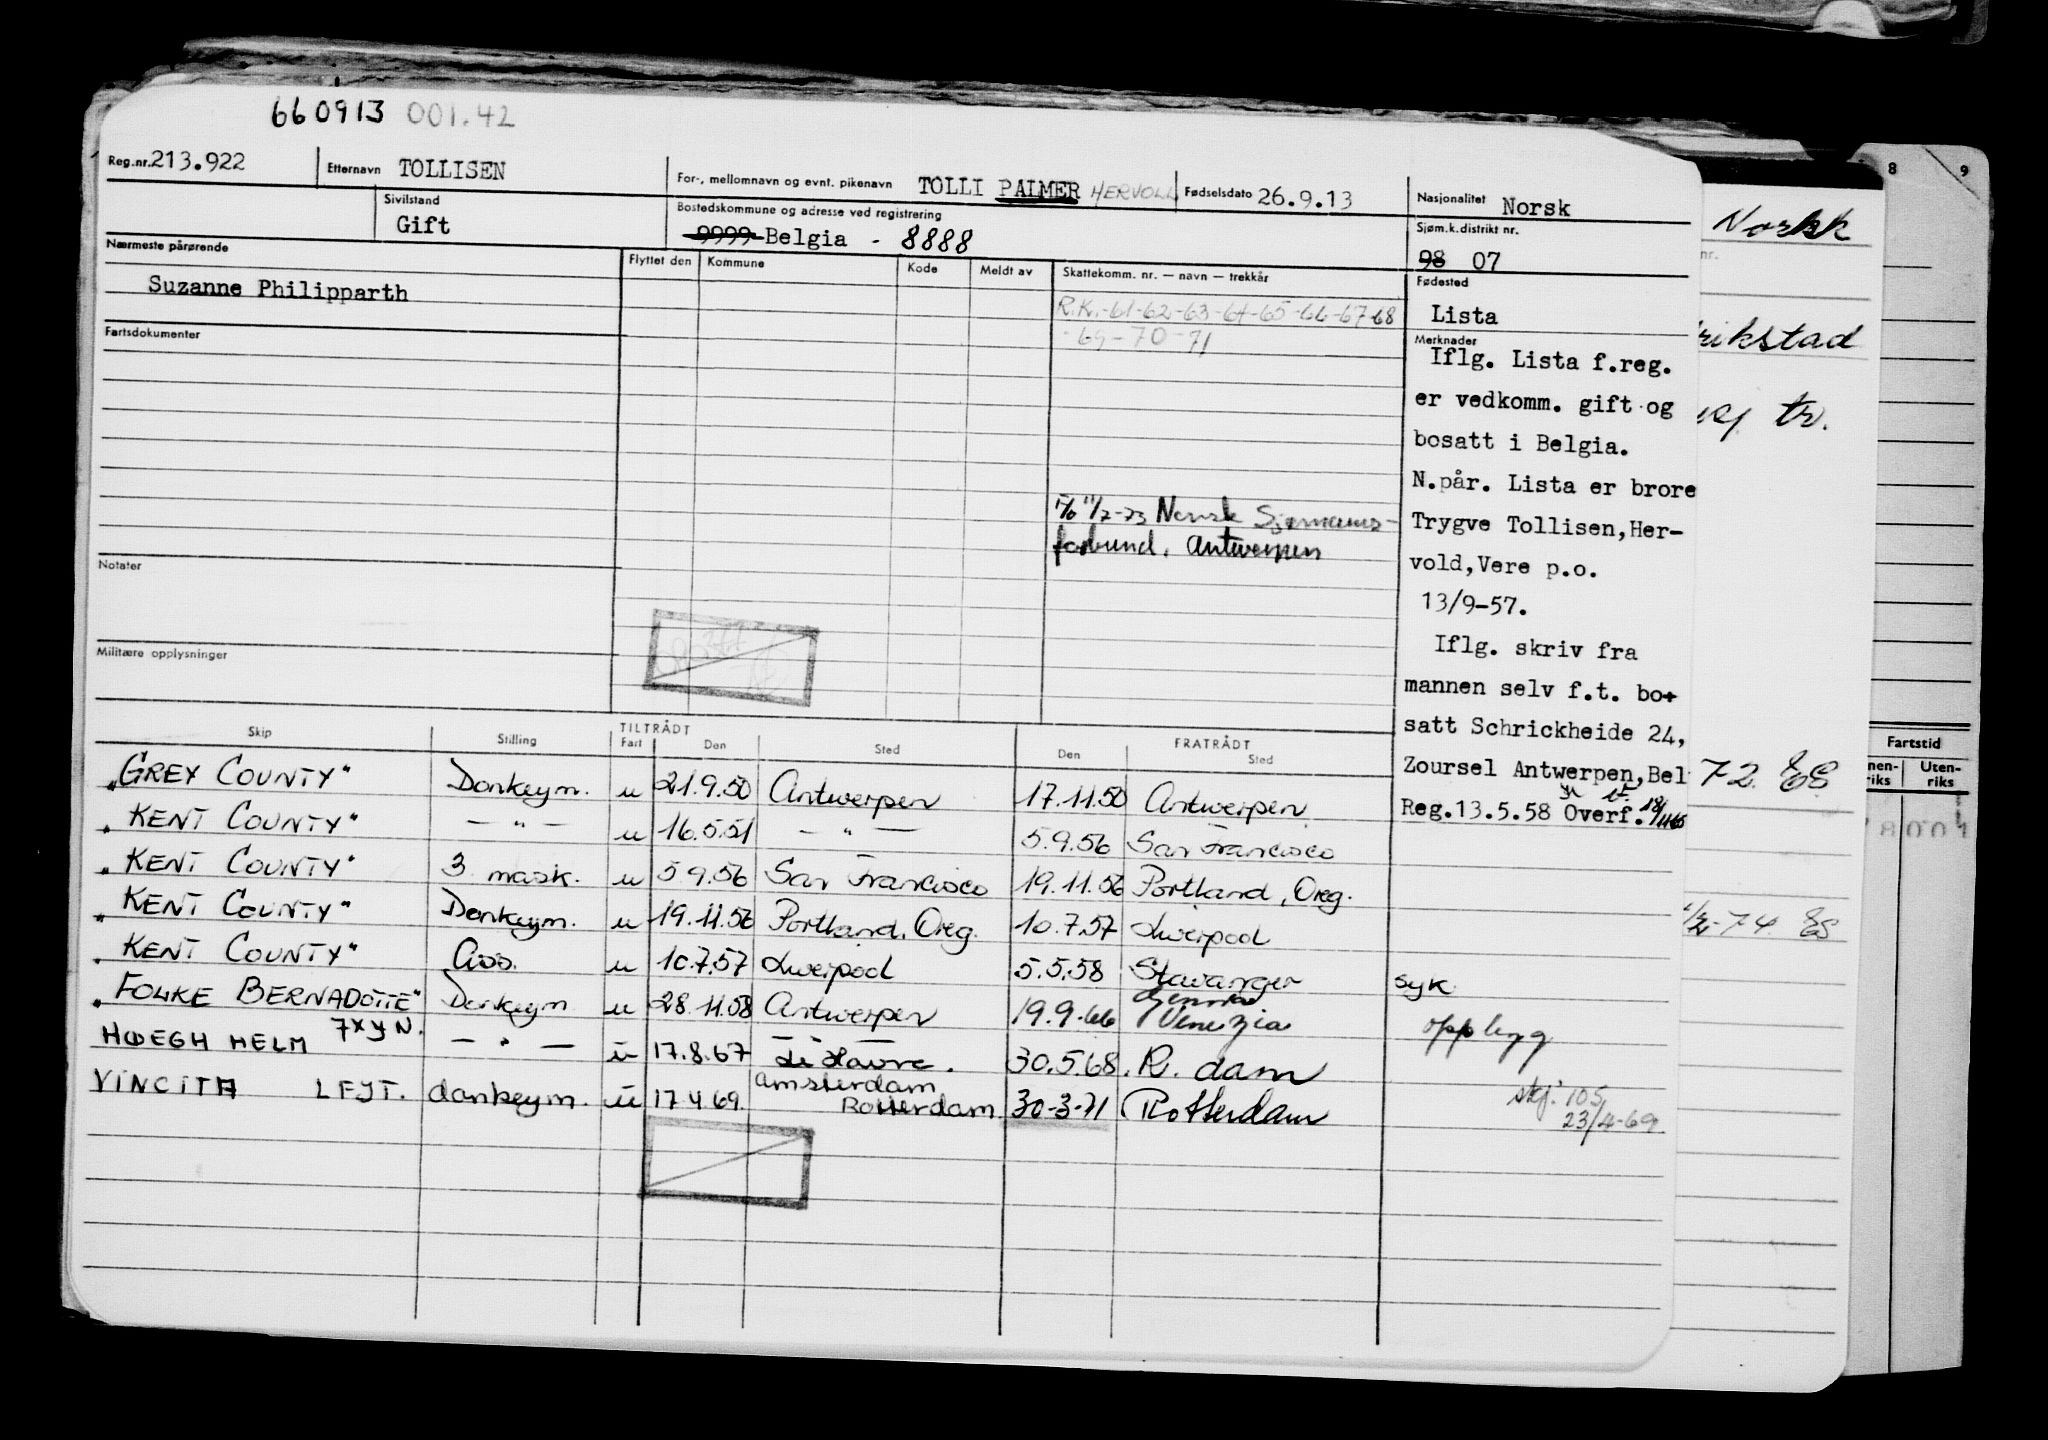 660913 001.42
Reg.nr. 213.922 Etternavn TOLLISEN For-, mellomnavn og evnt. pikenavn TOLLI PALMER HERVOLL Fødselsdato 26.9.13 Nasjonalitet Norsk
Sivilstand Gift Bostedskommune og adresse ved registrering 9999 Belgia - 8888 Sjøm.k.distrikt nr. 98 07
Nærmeste pårørende Flyttet den Kommune Kode Meldt av Skattekomm. nr. — navn — trekkår Fødested
Suzanne Philipparth
R.K.-61-62-63-64-65-66-67-68
-69-70-71
Lista
Fartsdokumenter
Merknader
Iflg. Lista f.reg.
er vedkomm. gift og
bosatt i Belgia.
N.pår. Lista er brore
Trygve Tollisen,Her-
vold,Vere p.o.
13/9-57.
Iflg. skriv fra
mannen selv f.t. bo-
satt Schrickheide 24,
Zoursel Antwerpen,Bel
Reg.13.5.58 Overf.
11/2-73 Norsk Sjømanns-
forbund. Antwerpen
Notater
Militære opplysninger
Skip Stilling TILTRÅDT Fart Den Sted FRATRÅDT Den Sted
"GREY COUNTY" Donkeym. u 21.9.50 Antwerpen 17.11.50 Antwerpen
"KENT COUNTY" — " — u 16.5.51 — " — 5.9.56 San Francisco
"KENT COUNTY" 3 mask. u 5.9.56 San Francisco 19.11.56 Portland, Oreg.
"KENT COUNTY" Donkeym. u 19.11.56 Portland, Oreg. 10.7.57 Liverpool
"KENT COUNTY" Ass. u 10.7.57 Liverpool 5.5.58 Stavanger syk
"FOLKE BERNADOTTE" Donkeym u 28.11.58 Antwerpen 19.9.66 Venezia opplegg
HØEGH HELM 7XYN. — " — u 17.8.67 Le Havre. 30.5.68. R.dam
VINCITA LFJT. donkeym. u 17.4.69. Amsterdam Rotterdam 30-3-71 Rotterdam
skj. 105
23/4-69
8 9
Norsk
nr.
rikstad
tv.
72 ES
74 ES
Fartstid
nen-riks Uten-riks